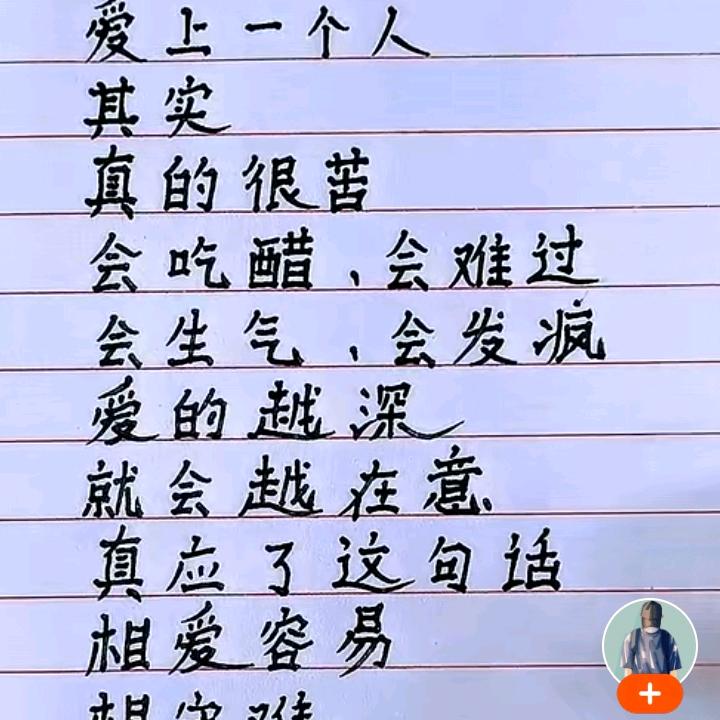 爱上一个人
其实
真的很苦
会吃醋、会难过
会生气、会发疯
爱的越深
就会越在意
真应了这句话
相爱容易
相守难